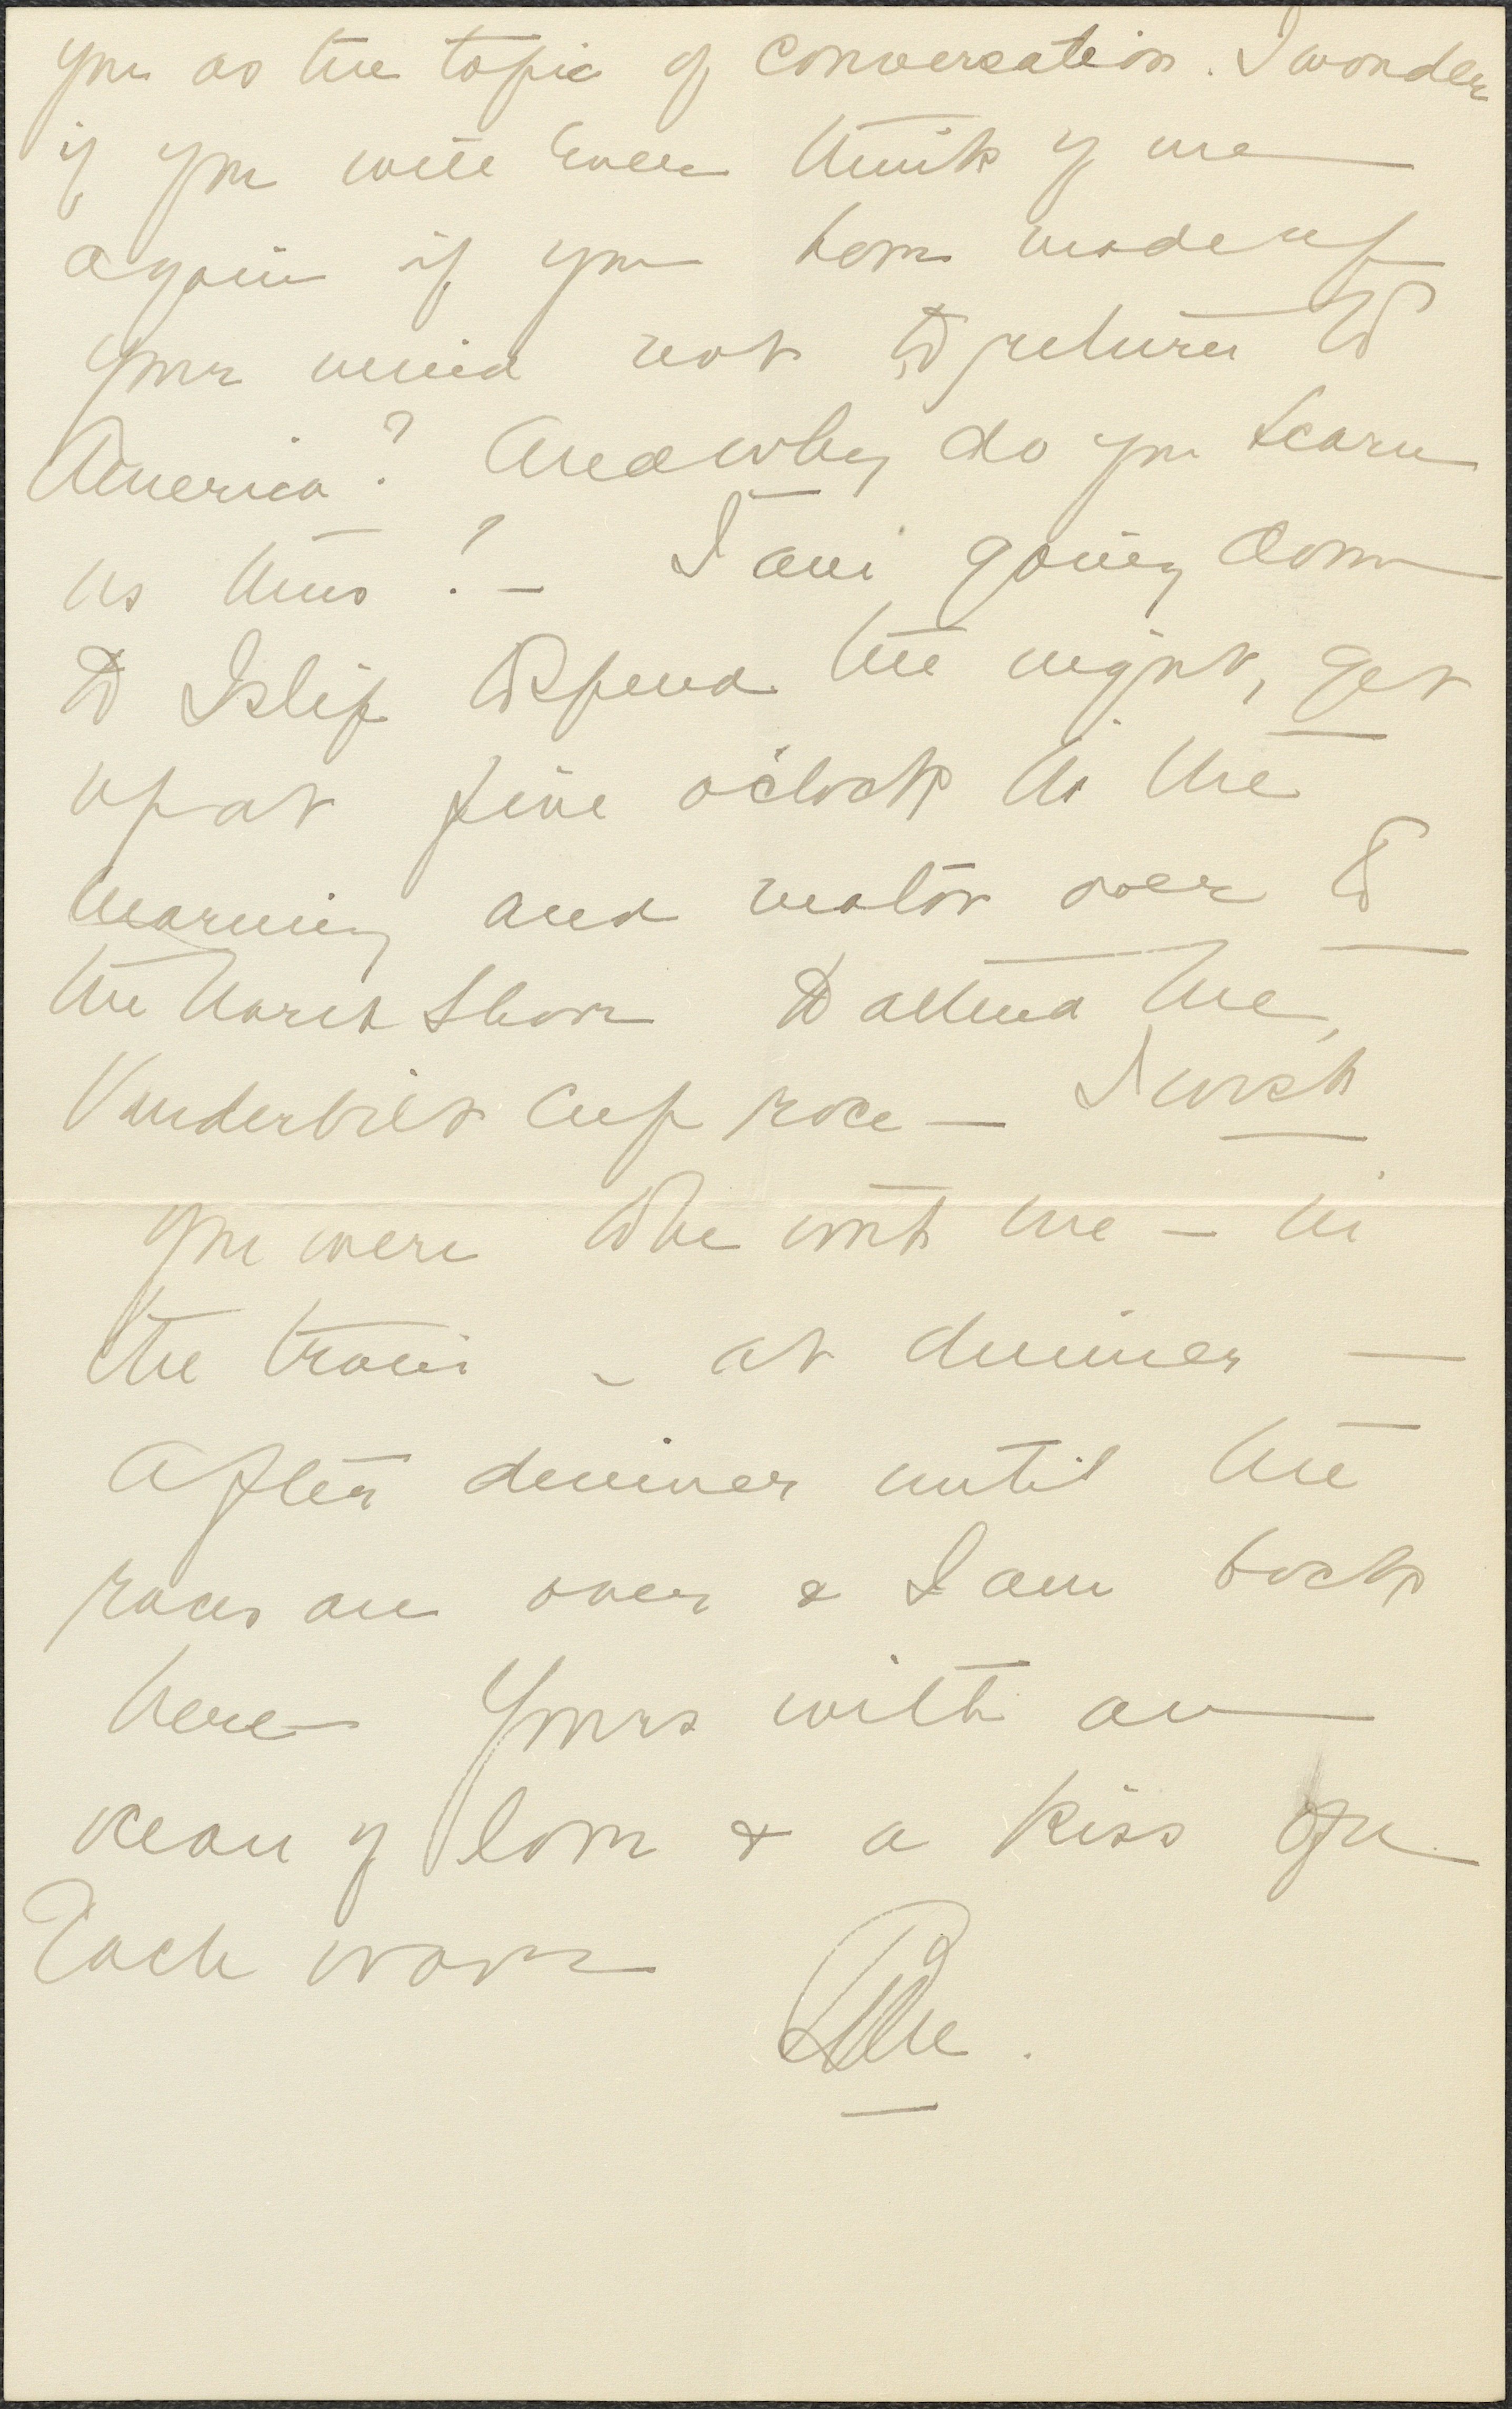 you as the topic of conversation. I wonder
if you will ever think of me
again if you have made up
your mind not to return to
America? And why do you scorn
us thus? – I am going down
to Islip to spend the night, get
up at five o'clock in the
morning and motor over to
the North Shore to attend the
Vanderbilt Cup race — I wish
you were to be with me – in
the train – at dinner —
after dinner until the
races are over & I am back
here Yours with an
ocean of love & a kiss for
Each wave